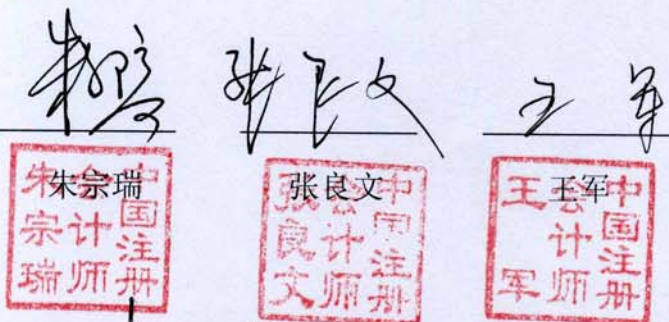 朱宗瑞 张良文 王军
朱宗瑞 张良文 王军
中国注册会计师朱宗瑞 中国注册会计师张良文 中国注册会计师王军